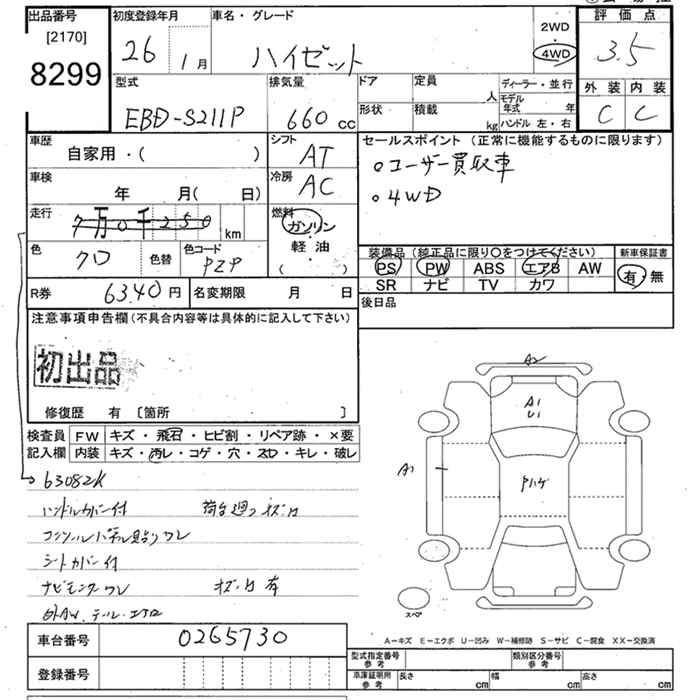 出品番号
[2170]
8299
初度登録年月
26 1月
車名・グレード
ハイゼット
2WD
4WD
評価点
3.5
外装 内装
C C
型式
EBD-S211P
排気量
660 cc
ドア
定員
人
形状
積載
kg
ディーラー・並行
モデル年式 年
ハンドル 左・右
車歴
自家用・( )
シフト
AT
セールスポイント (正常に機能するものに限ります)
○ユーザー買取車
○4WD
車検
年 月( 日)
冷房
AC
走行
7万0千250 km
燃料
ガソリン
軽油
( )
色
クロ
色替
色コード
装備品 (純正品に限り○をつけてください)
PS PW ABS エアB AW
SR ナビ TV カワ
新車保証書
有・無
R券
6340円
名変期限 月 日
後日品
注意事項申告欄(不具合内容等は具体的に記入して下さい)
初出品
修復歴 有 [箇所 ]
検査員記入欄
FW キズ・飛石・ヒビ割・リペア跡・×要
内装 キズ・汚レ・コゲ・穴・スレ・キレ・破レ
63082K
ハンドルカバー付
シートカバー付
A2
A1
U1
A1
スペア
A−キズ E−エクボ U−凹み W−補修跡 S−サビ C−腐食 XX−交換済
車台番号
0265730
登録番号
型式指定番号
参考
類別区分番号
参考
車庫証明用
参考
長さ cm
幅 cm
高さ cm